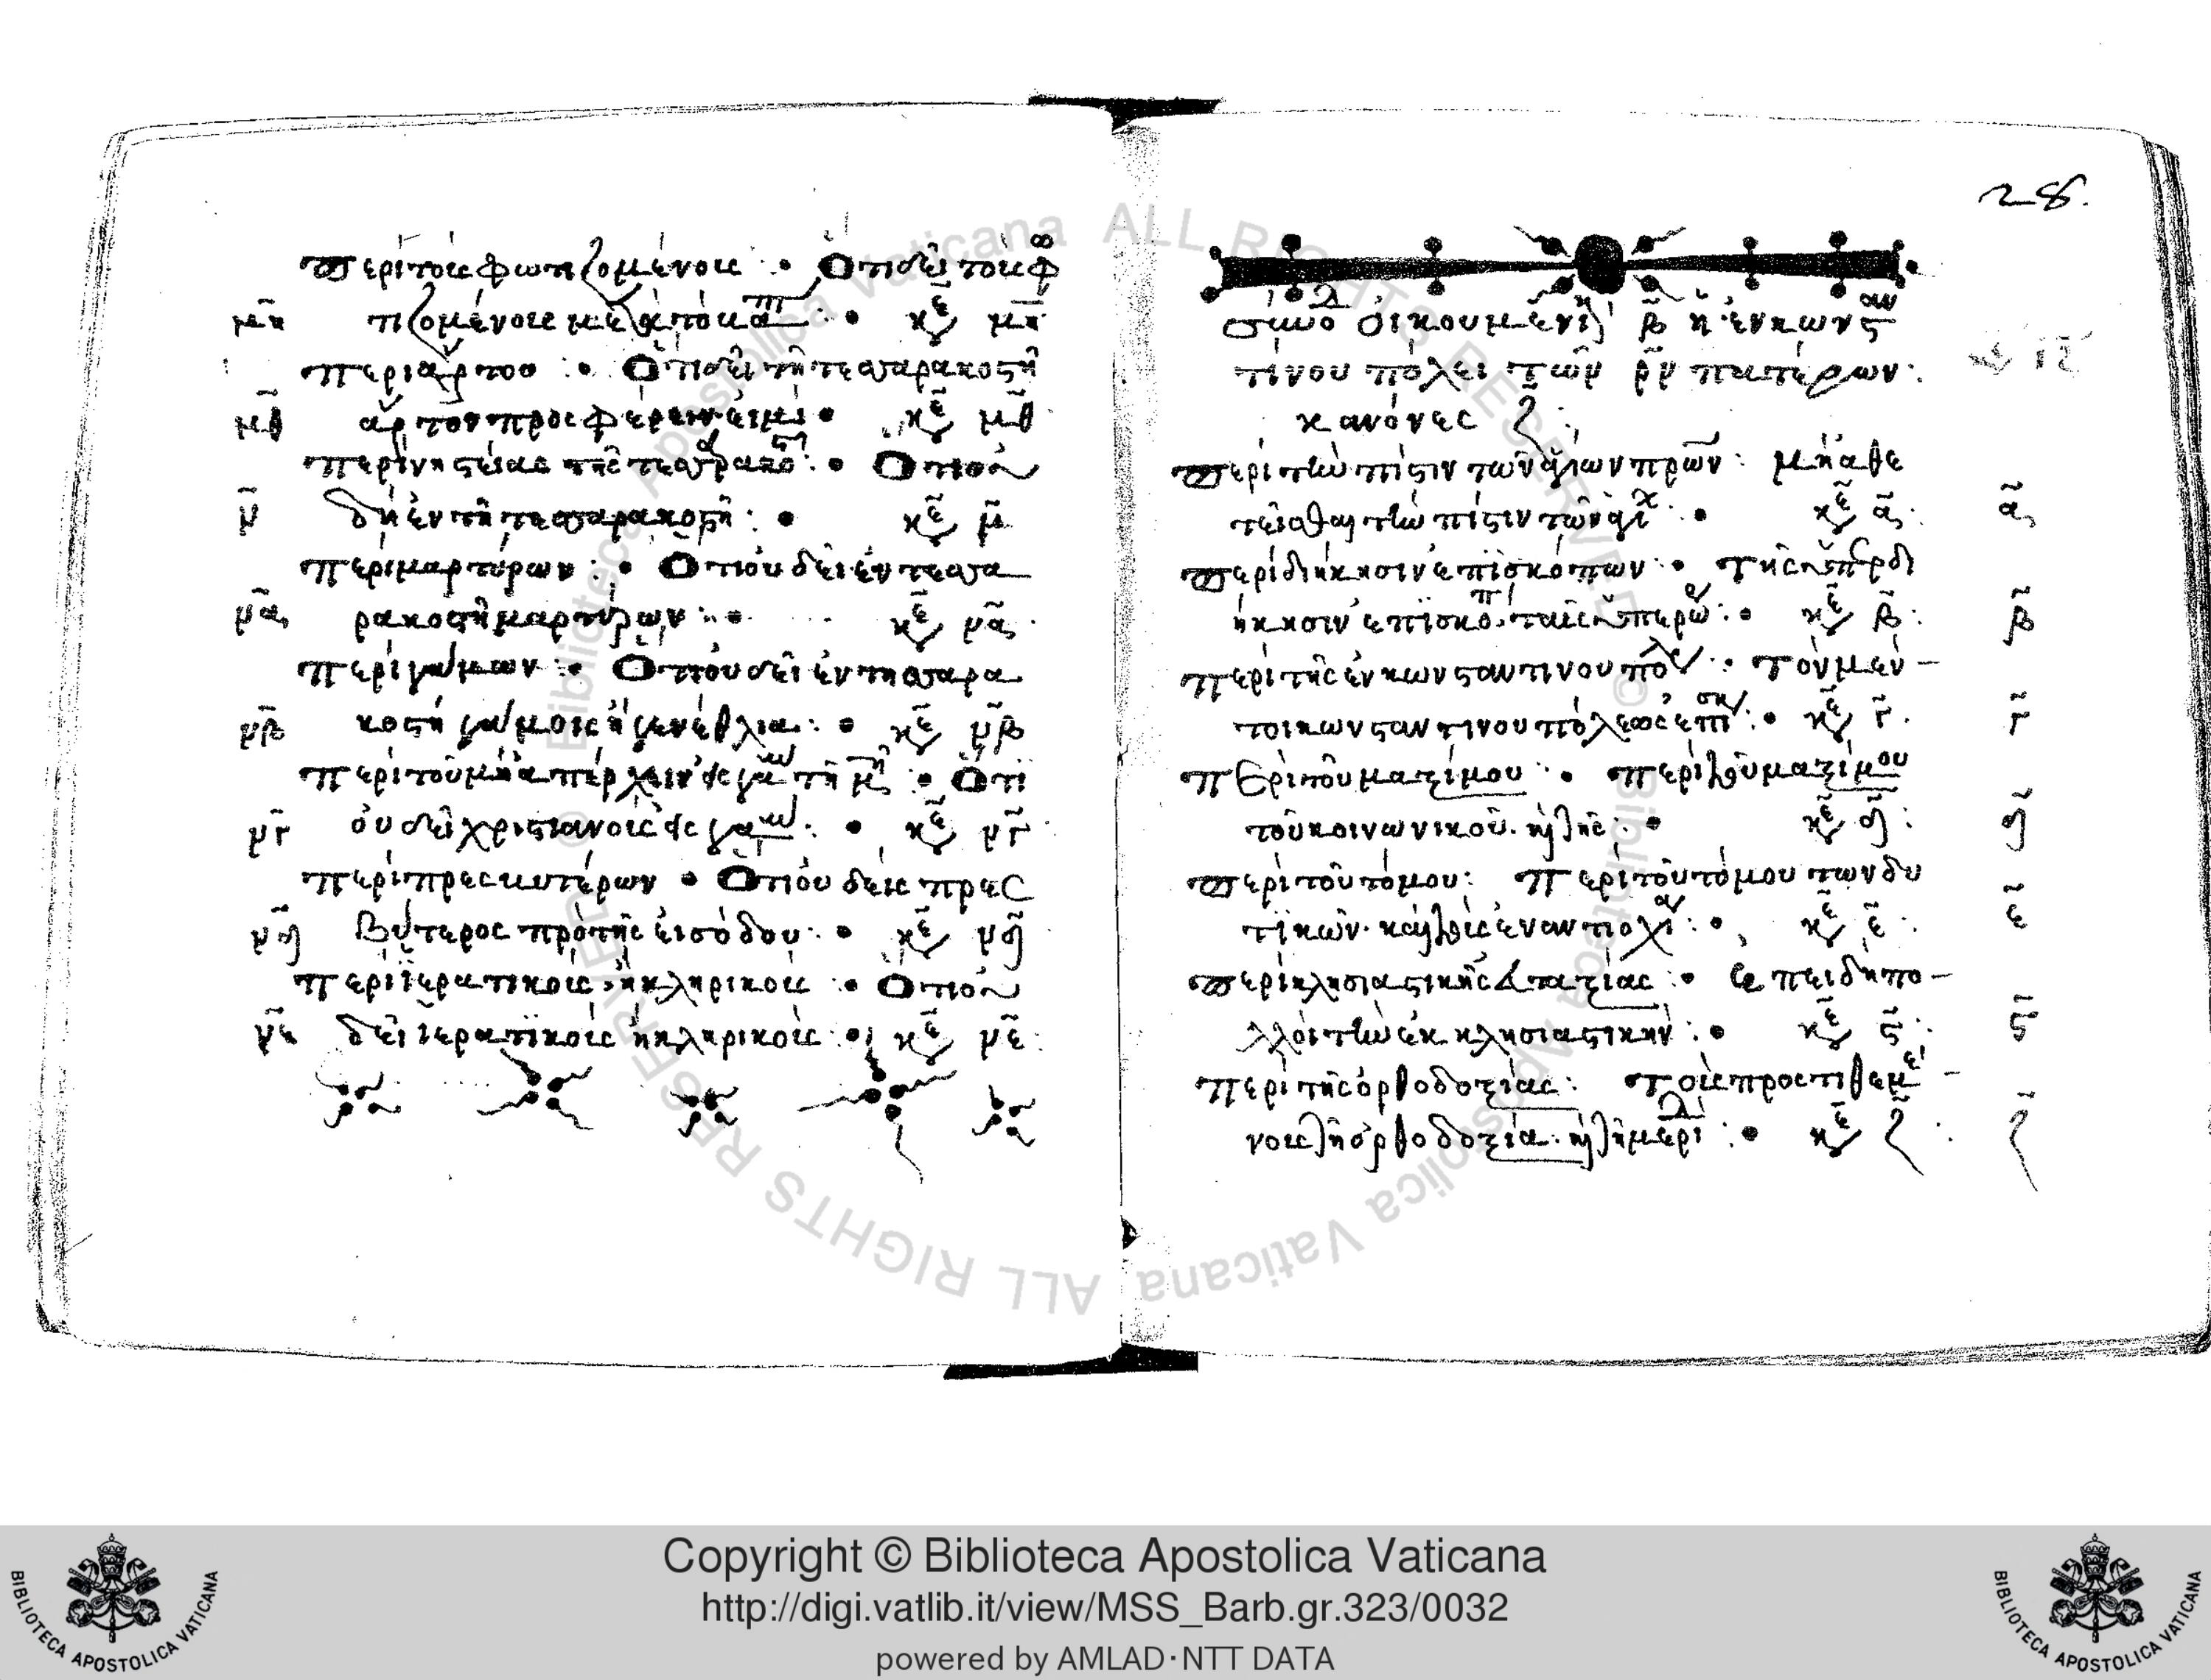 περὶ τοῖς φωτιζομένοις :· Ὅτι δεῖ τοὺς φω
μη τιζομένοις κε μη
περὶ ἄρτου :· Ὅτι οὐ δεῖ τῆ τεσσαρακοστῆ
μθ ἄρτον προσφέρειν εἰ μὶ · κε μθ
περὶ νηστείας τῆς τεσσαρακο :· Ὅτι οὐ
ν δεῖ ἐν τῆ τεσσαρακοστῆ : · κε ν
περὶ μαρτύρων : · Ὅτι οὐ δεῖ ἐν τεσσα
να ρακοστῆ μαρτύρων :· κε να
περὶ γάμων :· Ὅτι οὐ δεῖ ἐν τησσαρα
νβ κοστῆ γάμοις ἢ γενέθλια : · κε νβ
περὶ τοῦ μὴ ἀπέρχειν εἰς γάμ τῆ μ : · Ὅτι
νγ οὐ δεῖ χριστιανοῖς εἰς γαμ : · κε νγ
περὶ πρεσκυτέρων · Ὅτι οὐ δεῖ πρεσ
νδ βύτερος πρὸ τῆς εἰσόδου : · κε νδ
περὶ ἱερατικοῖς ἢ κληρικοῖς :· Ὅτι οὐ
νε δεῖ ἱερατικοῖς ἢ κληρικοῖς : · κε νε
28.
συνο οἰκουμενι β ἡ ἐν κωνσταν
τίνου πόλει τῶν ρν πατέρων :
κανόνες ζ :
περὶ τὴν πίστιν τῶν ἁγίων πρων : μὴ ἀθε
τεῖσθαι τὴν πίστιν τῶν ἁγί : · κε α α
περὶ διήκησιν ἐπισκόπων · τῆς ὑπὲρ δι
ήκησιν ἐπισκόπ ταῖς ὑπερω : · κε β : β
περὶ τῆς ἐν κωνσταντινουπολ : · τὸν μέν
τοι κωνσταντινουπόλεως ἐπισκ : · κε γ γ
περὶ τοῦ μαξίμου · περὶ τοῦ μαξίμου
τοῦ κοινωνικοῦ καὶ τῆς : · κε δ : δ
περὶ τοῦ τόμου : περὶ τοῦ τόμου των δυ
τικῶν καὶ τοῖς ἐν αντιοχι : · κε ε : ε
περὶ κλησιαστικῆς ἀταξίας : · ἐπειδὴ πο
λλοὶ τὴν ἐκκλησιαστικὴν : · κε ϛ : ϛ
περὶ τῆς ὀρθοδοξίας : τοῖς προστιθεμέ
νοις τῆ ὀρθοδοξία καὶ τῆ μερί : · κε ζ : ζ
Copyright © Biblioteca Apostolica Vaticana
http://digi.vatlib.it/view/MSS_Barb.gr.323/0032
powered by AMLAD·NTT DATA
BIBLIOTECA APOSTOLICA VATICANA
BIBLIOTECA APOSTOLICA VATICANA